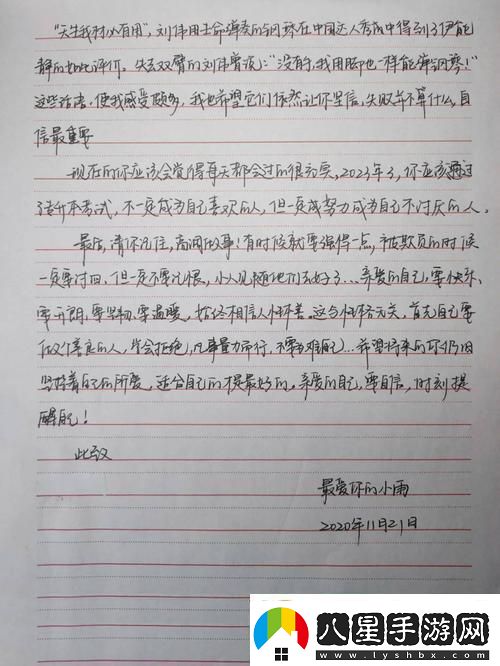 “天生我材必有用”，刘伟用生命弹奏的钢琴在中国达人秀中得到了伊能
静的如此评价。失去双臂的刘伟曾说：“没有手，我用脚也一样能弹钢琴！”
这些话语，使我感受颇多，我也希望它们依然让你坚信，失败并不算什么，自
信最重要
现在的你应该会觉得每天都会过的很充实，2023年了，你应该通过
专升本考试，不一定成为自己喜欢的人，但一定成努力成为自己不讨厌的人。
最后，请你记住，高调做事！有时候就要强得一点，被欺负的时候
一定要讨回，但一定不要记恨，小人见随他们去好了…亲爱的自己，要快乐、
要开朗、要坚韧、要温暖，始终相信人性本善。这与性格无关，首先自己要
做个善良的人，学会拒绝，凡事量力而行，不要为难自己…希望将来的你仍旧
坚持着自己的所爱，适合自己的才是最好的。亲爱的自己，要自信，时刻提
醒自己！
此致
最爱你的小雨
2020年11月21日
八星手游网
www.lyshbx.com